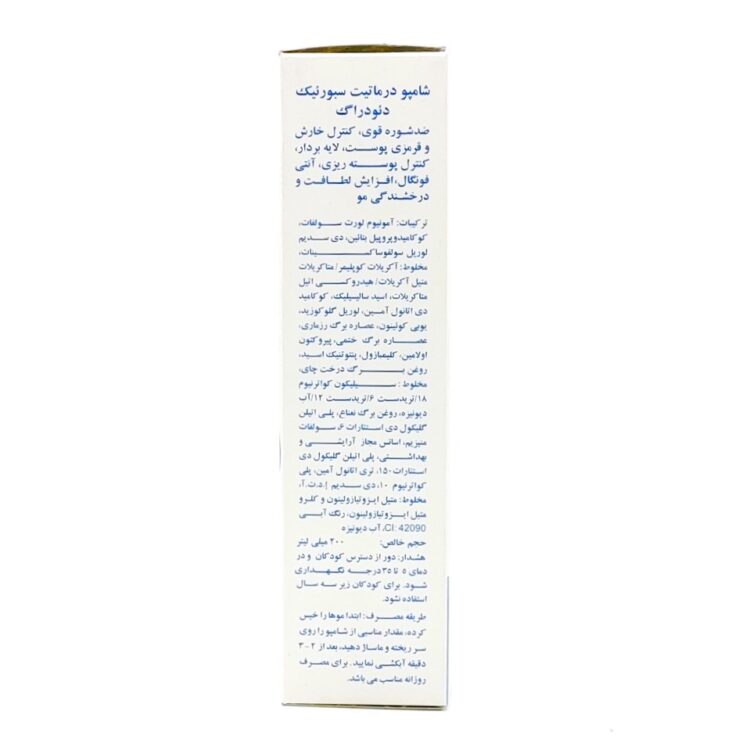 شامپو درماتیت سبورئیک
دئودراگ
ضدشوره قوی، کنترل خارش
و قرمزی پوست، لایه بردار،
کنترل پوسته ریزی، آنتی
فونگال، افزایش لطافت و
درخشندگی مو
ترکیبات: آمونیوم لورت سولفات،
کوکامیدوپروپیل بتائین، دی سدیم
لوریل سولفوساکسینات،
مخلوط: آکریلات کوپلیمر/ متاکریلات
متیل آکریلات/ هیدروکسی اتیل
متاکریلات، اسید سالیسیلیک، کوکامید
دی اتانول آمین، لوریل گلوکوزید،
یوبی کوئینون، عصاره برگ رزماری،
عصاره برگ ختمی، پیروکتون
اولامین، کلیمبازول، پنتوتنیک اسید،
روغن برگ درخت چای،
مخلوط: سیلیکون کواترنیوم
۱۸/تریدست ۶/تریدست ۱۲/آب
دیونیزه، روغن برگ نعناع، پلی اتیلن
گلیکول دی استئارات ۶، سولفات
منیزیم، اسانس مجاز آرایشی و
بهداشتی، پلی اتیلن گلیکول دی
استئارات ۱۵۰، تری اتانول آمین، پلی
کواترنیوم ۱۰، دی سدیم إ.د.ت.آ،
مخلوط: متیل ایزوتیازولینون و کلرو
متیل ایزوتیازولینون، رنگ آبی
CI: 42090، آب دیونیزه
حجم خالص: ۲۰۰ میلی لیتر
هشدار: دور از دسترس کودکان و در
دمای ۵ تا ۳۵ درجه نگهداری
شود. برای کودکان زیر سه سال
استفاده نشود.
طریقه مصرف: ابتدا موها را خیس
کرده، مقدار مناسبی از شامپو را روی
سر ریخته و ماساژ دهید، بعد از ۲-۳
دقیقه آبکشی نمایید. برای مصرف
روزانه مناسب می باشد.